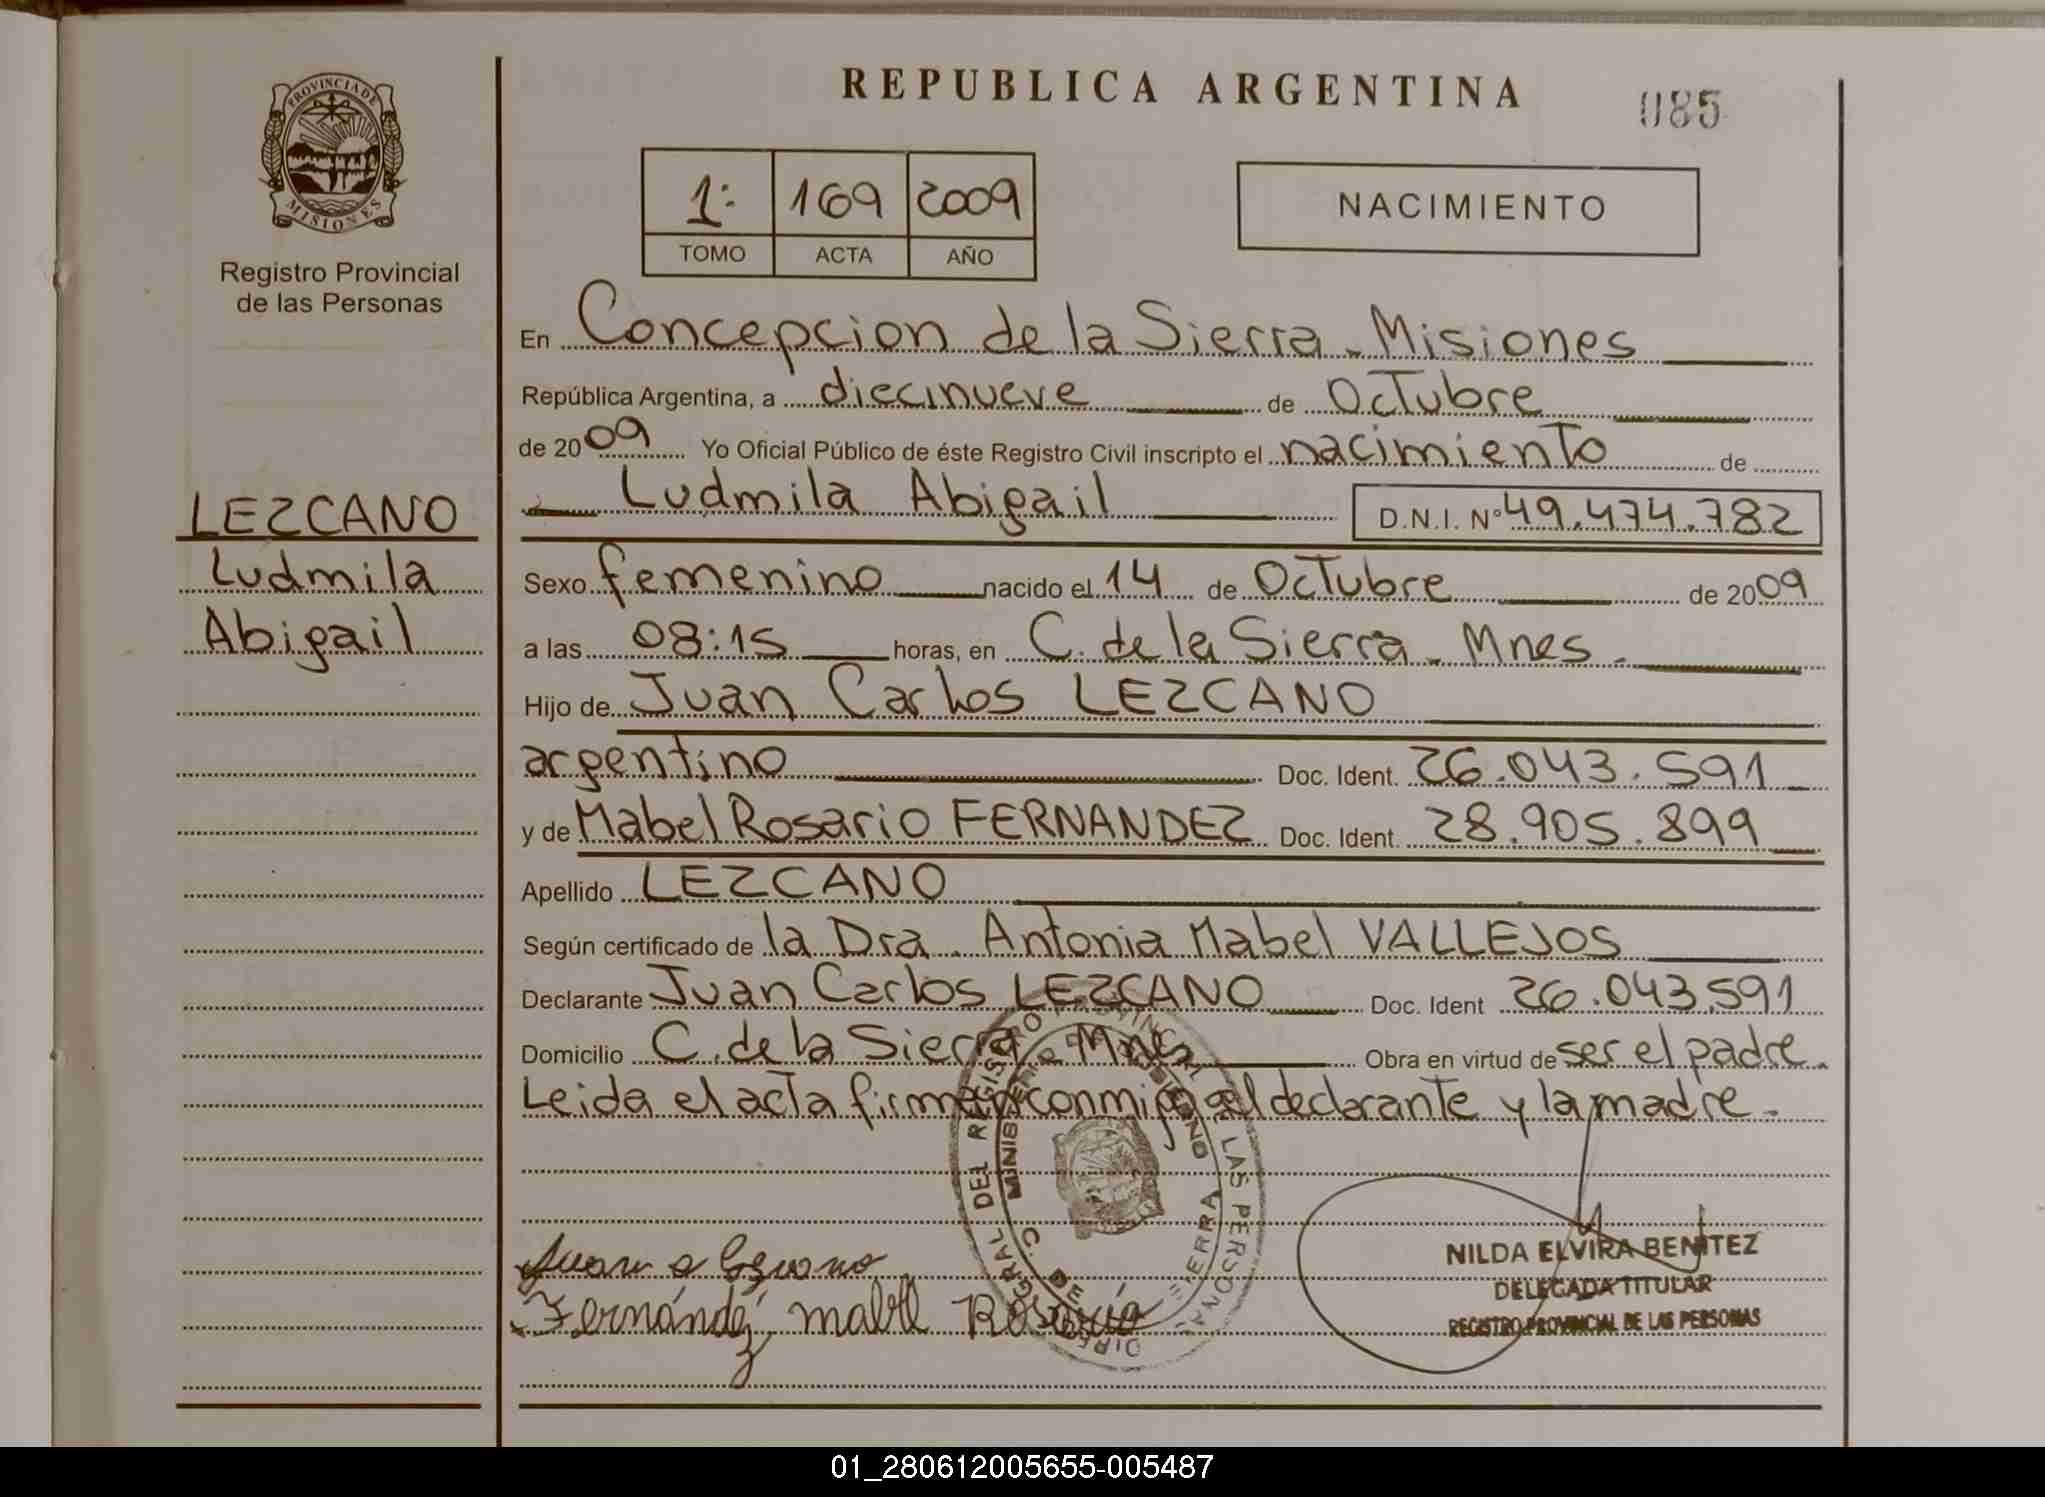 PROVINCIA DE
MISIONES
Registro Provincial
de las Personas
LEZCANO
Ludmila
Abigail
REPUBLICA ARGENTINA
085
1: 169 2009
TOMO ACTA AÑO
NACIMIENTO
En Concepcion de la Sierra - Misiones
República Argentina, a diecinueve de Octubre
de 2009 Yo Oficial Público de éste Registro Civil inscripto el nacimiento de
Ludmila Abigail D.N.I. Nº 49.474.782
Sexo femenino nacido el 14 de Octubre de 2009
a las 08:15 horas, en C. de la Sierra - Mnes -
Hijo de Juan Carlos LEZCANO
argentino Doc. Ident. 26.043.591
y de Mabel Rosario FERNANDEZ Doc. Ident. 28.905.899
Apellido LEZCANO
Según certificado de la Dra. Antonia Mabel VALLEJOS
Declarante Juan Carlos LEZCANO Doc. Ident 26.043.591
Domicilio C. de la Sierra - Mnes Obra en virtud de ser el padre.
Leida el acta firman conmigo el declarante y la madre.
Fernández mabel Rosario
NILDA ELVIRA BENITEZ
DELEGADA TITULAR
REGISTRO PROVINCIAL DE LAS PERSONAS
01_280612005655-005487